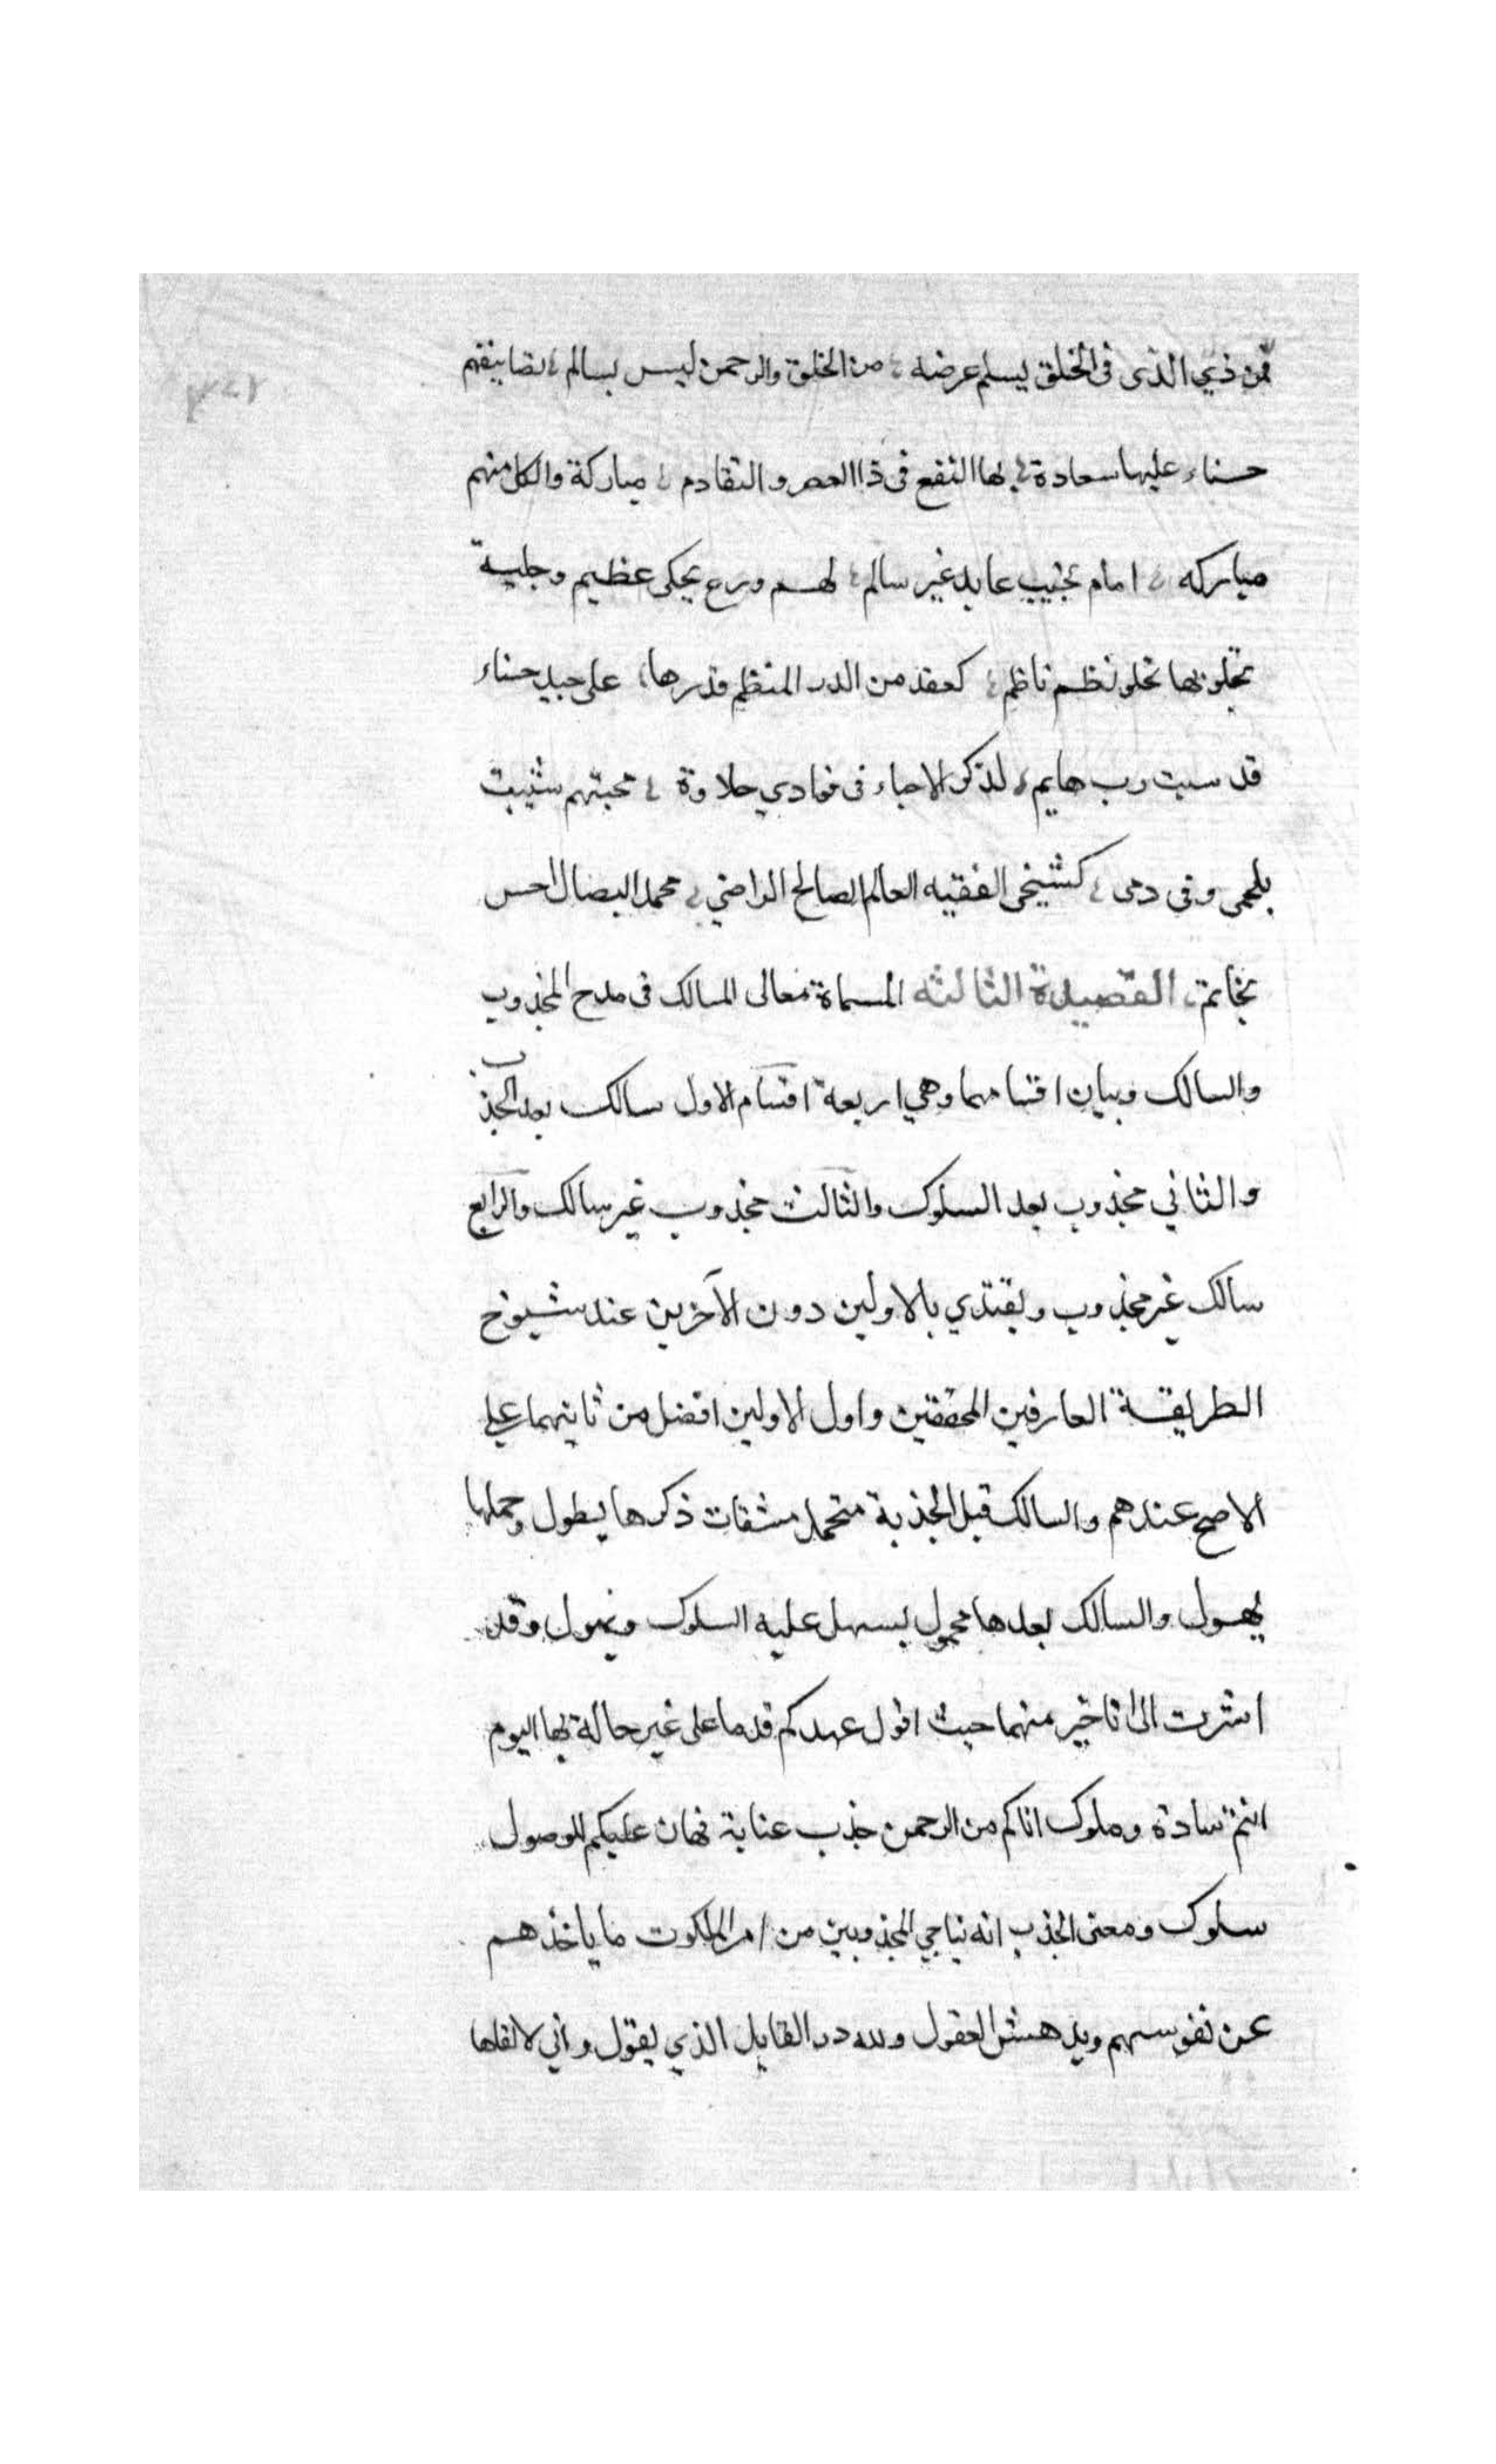 فمن ذي الذى فى الخلق يسلم عرضه من الخلق والرحمن ليس بسالم تصانيفهم
حسناء عليها سعادة لها النفع فى ذا العصر والتقادم مباركة والكل منهم
مباركه امام نجيب عابد غير سالم لهم ورع يحكى عظيم وحلية
تحلو بها تحلو نظم ناظم كعقد من الدر المنظم قدرها على جيد حسناء
قد سبت رب هايم لذكر الاحباء فى فوادي حلاوة محبتهم شيبت
بلحمى وفى دمى كشيخى الفقيه العالم الصالح الراضي محمد البصال احسن
بخاتم القصيدة الثالثه المسماة معالى المسالك فى مدح المجذوب
والسالك وبيان اقسامهما وهي اربعة اقسام الاول سالك بعد الجذب
والثاني مجذوب بعد السلوك والثالث مجذوب غير سالك والرابع
سالك غير مجذوب ويقتدي بالاولين دون الآخرين عند شيوخ
الطريقة العارفين المحققين واول الاولين افضل من ثانيهما على
الاصح عندهم والسالك قبل الجذبة متحمل مشقات ذكرها يطول وحملها
يهول والسالك بعدها محمول يسهل عليه السلوك ويهون وقد
اشرت الى تاخير منهما حيث اقول عهدكم قدما على غير حالة بها اليوم
انتم سادة وملوك اتاكم من الرحمن جذب عناية فهان عليكم للوصول
سلوك ومعنى الجذب انه يناجي المجذوبين من امر الملكوت ما ياخذهم
عن نفوسهم ويدهش العقول ولله در القايل الذي يقول واني لالقاها